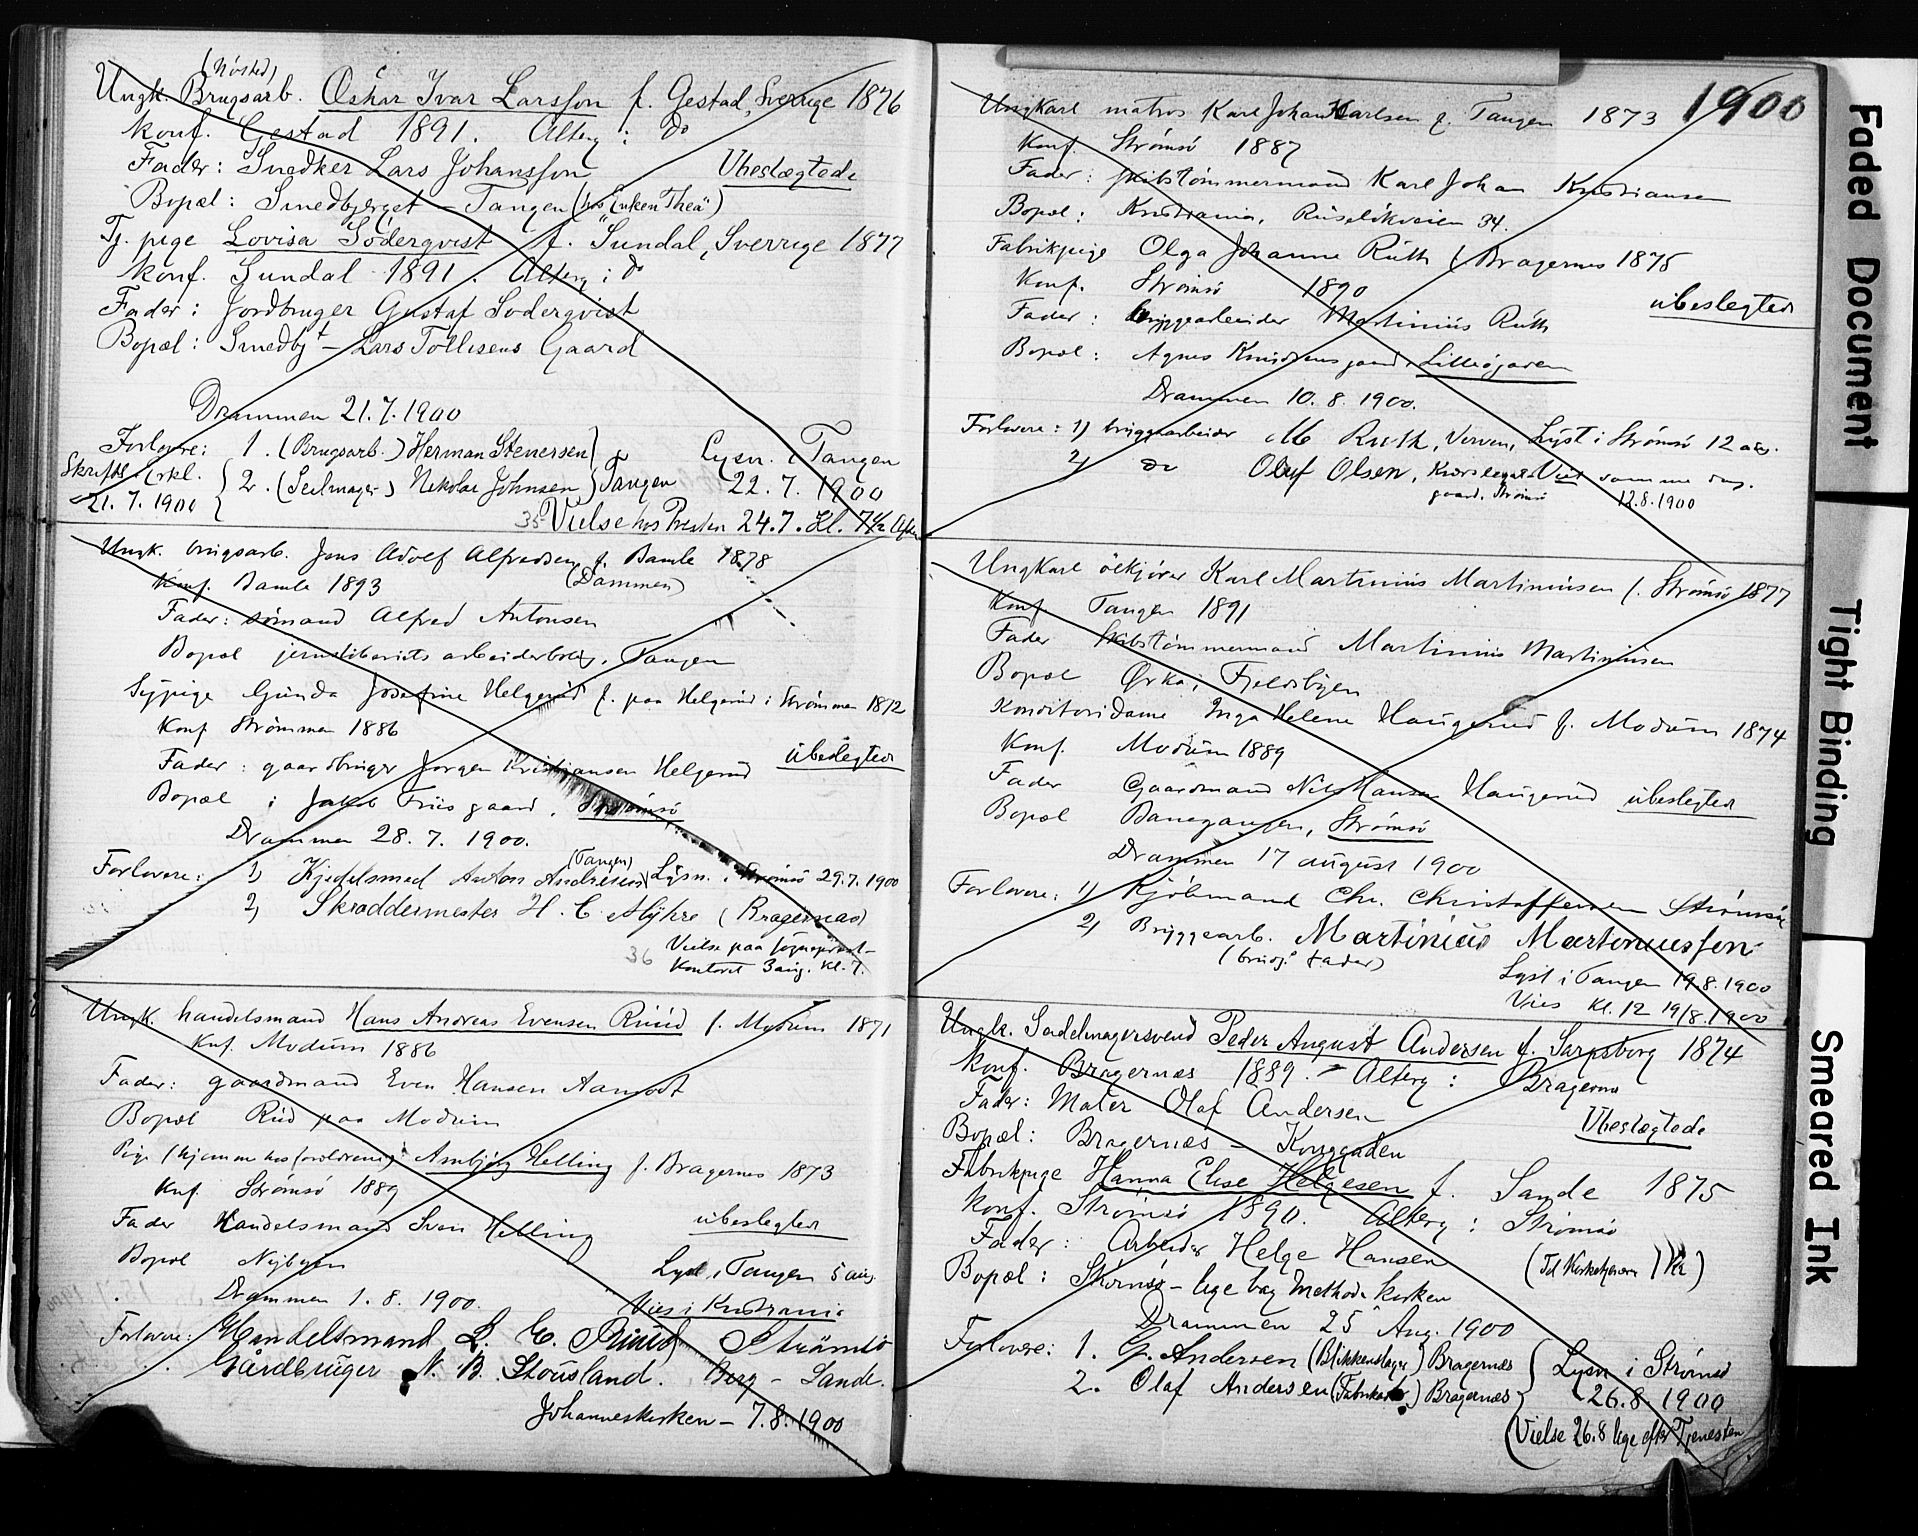 (Nøsted)
Ungk. Brugsarb. Oskar Ivar Larsson f. Gestad, Sverrige 1876
Konf. Gestad 1891. Alterg: do
Fader: Snedker Lars Johansson Ubeslægtede
Bopæl: Smedbjerget - Tangen (hos Enken Thea)
Tj. pige Lovisa Söderqvist f. Sundal, Sverrige 1877
Konf. Sundal 1891. Alterg: do
Fader: Jordbruger Gustaf Søderqvist
Bopæl: Smedbjt - Lars Tollisens Gaard
Drammen 21.7.1900
Forlovere: 1. (Brugsarb.) Herman Stenersen
Skriftl. Erkl. 21.7.1900
2. (Seilmager) Nikolai Johnsen Tangen
Lysn. i Tangen
22.7.1900
35 Vielse hos Presten 24.7. Kl. 7½ Aften
Ungk. brugsarb. Jens Adolf Alfredsen f. Bamle 1878
(Dammen)
Konf. Bamle 1893
Fader: sømand Alfred Antonsen
Bopæl jernstøberiets arbeiderbolig, Tangen
Sypige Gunda Josefine Helgerud f. paa Helgerud i Strømmen 1872
Konf Strømmen 1886
Fader: gaardbruger Jørgen Kristiansen Helgerud ubeslegtede
Bopæl i Jakob Friis gaard, Strømsø
Drammen 28.7.1900.
Forlovere: 1) Kjedelsmed Anton Andresen (Tangen) Lysn. i Strømsø 29.7.1900
2) Skræddermester H. C. Myhre (Bragernæs)
36 Vielse paa sogneprest-
kontoret 3 aug. kl. 7.
Ungk. handelsmand Hans Andreas Evensen Ruud f. Modum 1871
Knf. Modum 1886
Fader: gaardmand Even Hansen Aamodt
Bopæl Rud paa Modum
Pige (hjemme hos forældrene) Ambjørg Helling f. Bragernes 1873
Knf. Strømsø 1889
Fader Handelsmand Sven Helling ubeslegtede
Bopæl Nybyen
Lyst i Tangen 5 aug.
Drammen 1.8.1900.
Vies i Kristiania
Forlovere: Handelsmand L. E. Ruud Strømsø
Gårdbruger N. B. Stousland. Berg - Sande.
Johanneskirken - 7.8.1900
1900
Ungkarl matros Karl Johan Karlsen f. Tangen 1873
Konf. Strømsø 1887
Fader: skibstømmermand Karl Johan Kristiansen
Bopæl: Kristiania, Ruseløkveien 34.
Fabrikpige Olga Johanne Ruth f. Bragernes 1875
Konf. Strømsø 1890
ubeslegtede
Fader: bryggearbeider Martinius Ruth
Bopæl: Agnes Knudsens gaard, Lilleøgaden
Drammen 10.8.1900.
Forlovere: 1) bryggearbeider M Ruth, Verven, Lyst i Strømsø 12 aug.
2) do Oluf Olsen, gaard, Strømsø Viet samme dag.
12.8.1900
Ungkarl ølkjører Karl Martinius Martiniusen f. Strømsø 1877
Konf Tangen 1891
Fader Skibstømmermand Martinius Martiniusen
Bopæl Ørka i Fjeldbyen
Konditoridame Inga Helene Haugerud f. Modum 1874
Konf. Modum 1889
Fader Gaardmand Nils Hansen Haugerud ubeslegtede
Bopæl Banegangen, Strømsø
Drammen 17 august 1900
Forlovere: 1) Kjøbmand Chr. Christoffersen Strømsø
2) Bryggearb. Martinius Martiniussen
(brudg. fader)
Lyst i Tangen 19.8.1900
Vies kl. 12 19/8.1900
Ungk. Sadelmagersvend Peder August Andersen f. Sarpsborg 1874
Konf. Bragernæs 1889. - Alterg: Bragernæs
Fader: Maler Olaf Andersen
Ubeslægtede
Bopæl: Bragernæs - Konggaden
Fabrikpige Hanna Elise Helgesen f. Sande 1875
Konf. Strømsø 1890. Alterg: Strømsø
Fader: Arbeider Helge Hansen
(Til Kirketjeneren 1 Kr)
Bopæl: Strømsø - lige bag Methodistkirken
Drammen 25 Aug. 1900
Forlovere: 1. G. Andersen (Blikkenslager) Bragernæs
2. Olaf Andersen (Fabrikarb.) Bragernæs
Lysn i Strømsø
26.8.1900
(Vielse 26.8 lige efter Tjenesten
Faded Document
Tight Binding
Smeared Ink